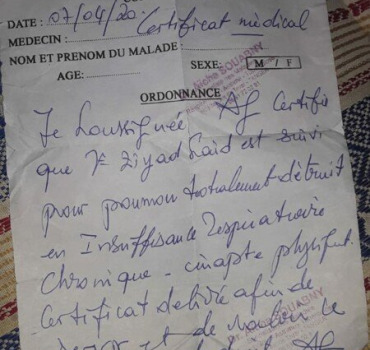 DATE : 07/04/20 Certificat médical
MEDECIN :
NOM ET PRENOM DU MALADE :
AGE: SEXE: M / F
ORDONNANCE
Je soussignée, Certifie
que Mr Ziyad Said est suivi
pour poumon totalement détruit
en Insuffisance respiratoire
chronique - inapte
Certificat délivré afin de
et de